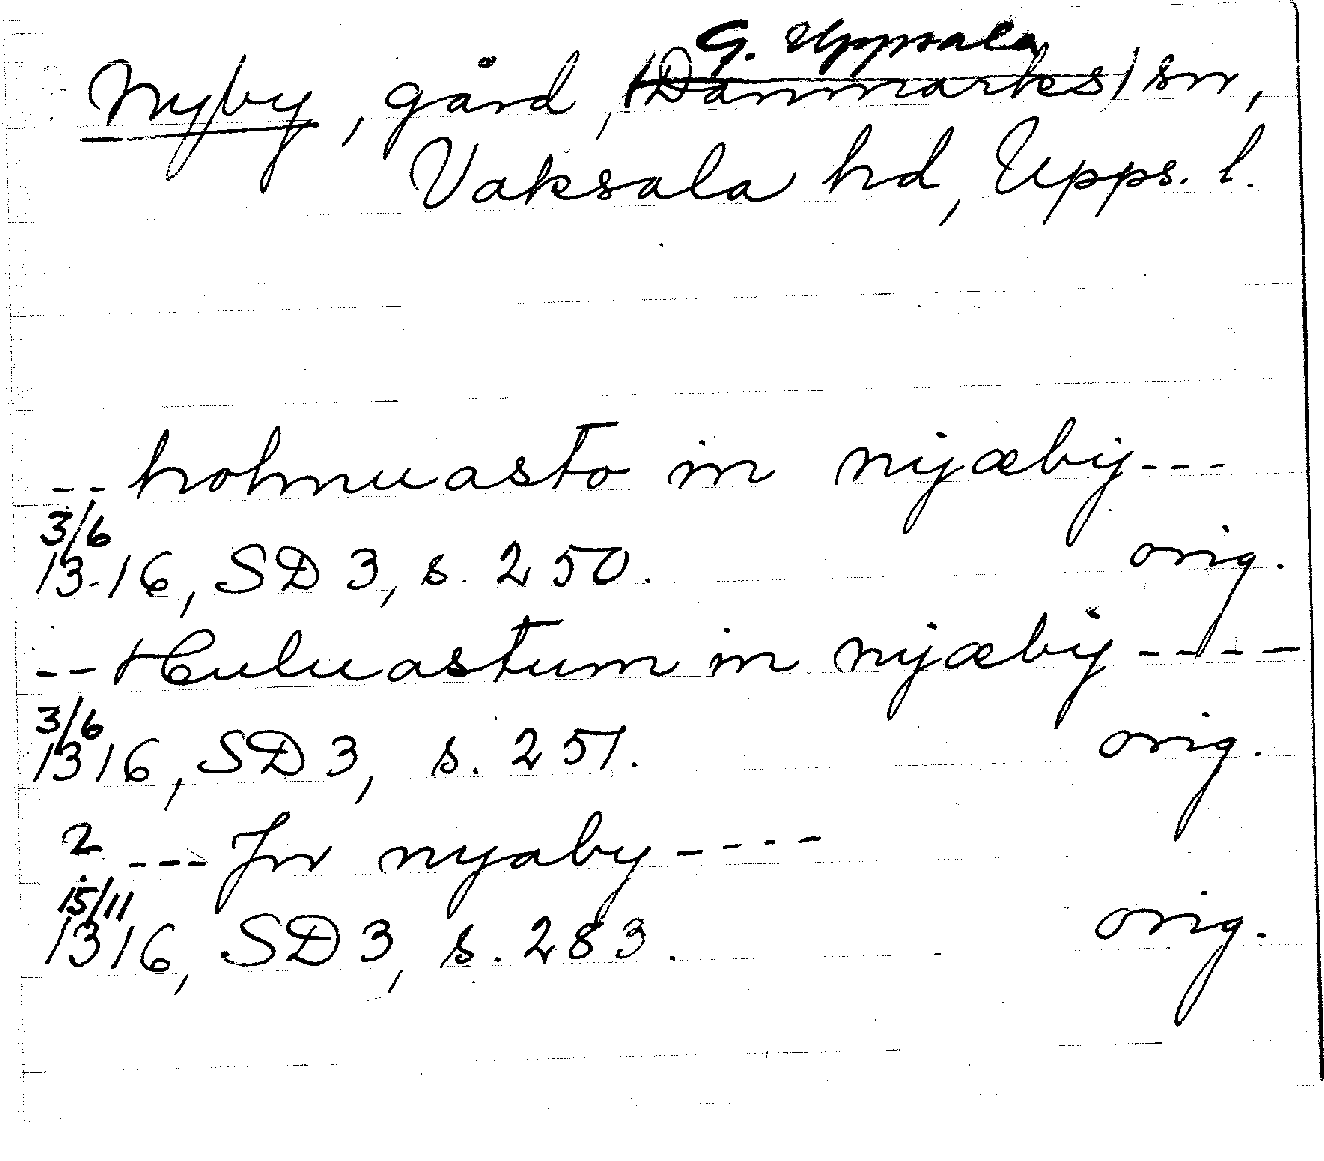 G. Uppsala
Nyby, gård, (Danmarks) sn,
Vaksala hd, Upps. l.
-- holmuasto in nyæby ---
3/6
1316, SD 3, s. 250. orig.
-- Huluastum in nyæby ----
3/6
1316, SD 3, s. 251. orig.
2 --- Jn nyaby ----
15/11
1316, SD 3, s. 283. orig.